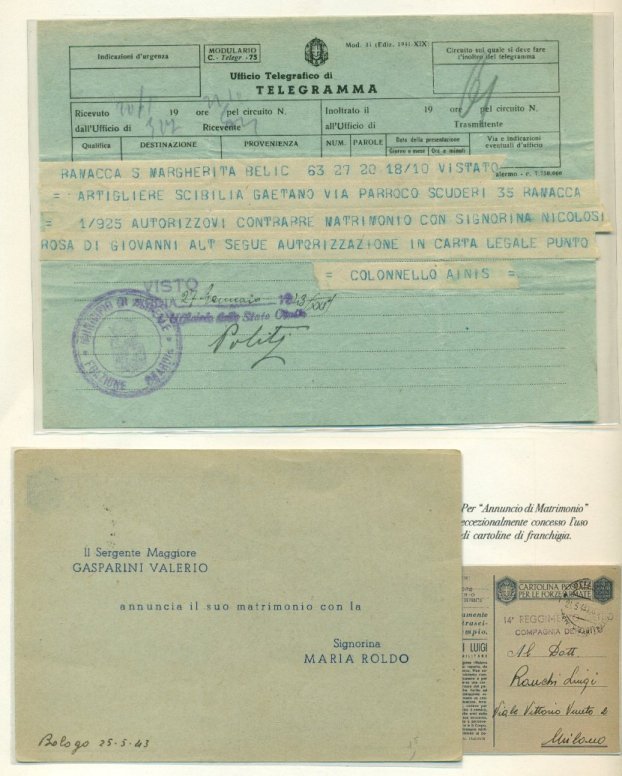 Indicazioni d'urgenza
MODULARIO
C. - Telegr. - 75
Mod. 31 (Ediz. 1941-XIX)
Circuito sul quale si deve fare
l'inoltro del telegramma
Ufficio Telegrafico di
TELEGRAMMA
Ricevuto 19 ore pel circuito N.
dall'Ufficio di Ricevente
Inoltrato il 19 ore pel circuito N.
all'Ufficio di Trasmittente
Qualifica DESTINAZIONE PROVENIENZA NUM. PAROLE Data della presentazione Via e indicazioni
Giorno e mese Ore e minuti eventuali d'ufficio
RAMACCA S MARGHERITA BELIC 63 27 20 18/10 VISTATO
= ARTIGLIERE SCIBILIA GAETANO VIA PARROCO SCUDERI 35 RAMACCA
= 1/925 AUTORIZZOVI CONTRARRE MATRIMONIO CON SIGNORINA NICOLOSI
ROSA DI GIOVANNI ALT SEGUE AUTORIZZAZIONE IN CARTA LEGALE PUNTO
= COLONNELLO AINIS =
VISTO
27 Gennaio 1943
dello Stato Civile
Politi
Per "Annuncio di Matrimonio"
eccezionalmente concesso l'uso
di cartoline di franchigia.
Il Sergente Maggiore
GASPARINI VALERIO
annuncia il suo matrimonio con la
Signorina
MARIA ROLDO
Bologo 25-5-43
CARTOLINA POSTALE
PER LE FORZE ARMATE
14° REGGIME
COMPAGNIA
Al Dott.
Ranchi Luigi
Viale Vittorio Veneto 2
Milano